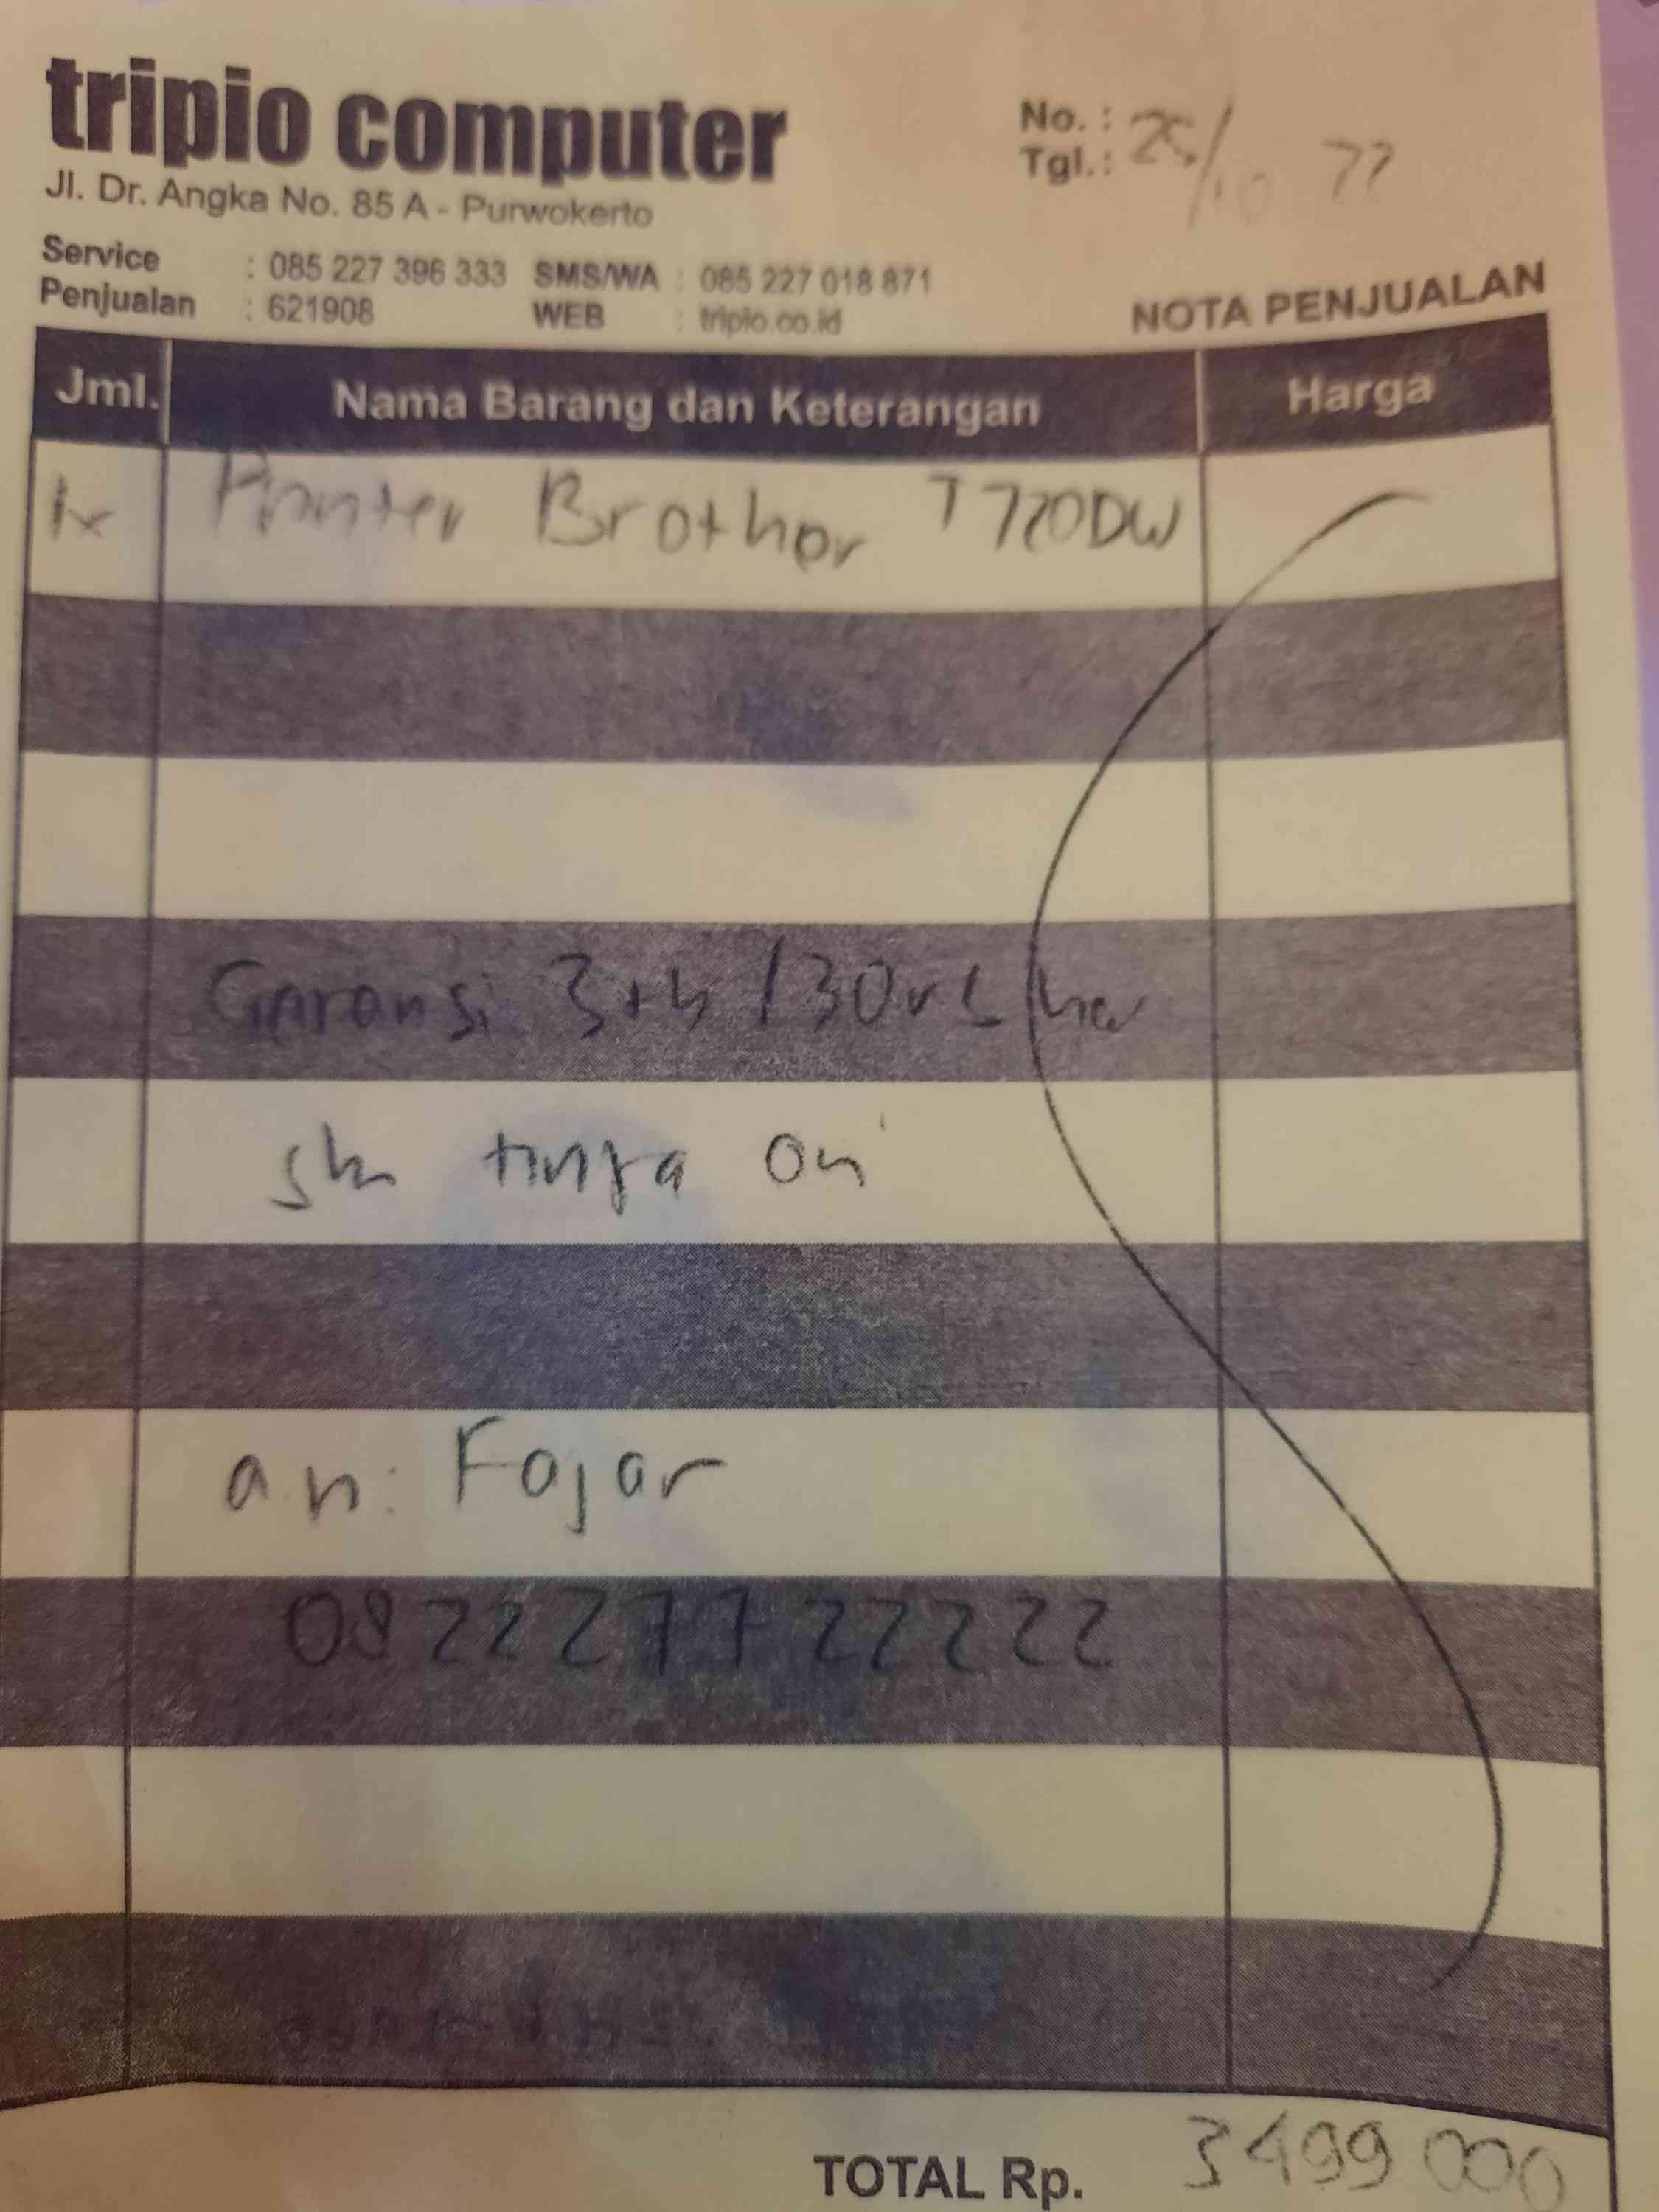 tripio computer
Jl. Dr. Angka No. 85 A - Purwokerto
No. :
Tgl. : 25/10 22
Service : 085 227 396 333 SMS/WA : 085 227 018 871
Penjualan : 621908 WEB : tripio.co.id
NOTA PENJUALAN
Jml. Nama Barang dan Keterangan Harga
1x Printer Brother T720DW
Garansi 3th / 30rb lbr
tinta ori
an: Fajar
082227722222
TOTAL Rp. 3499000